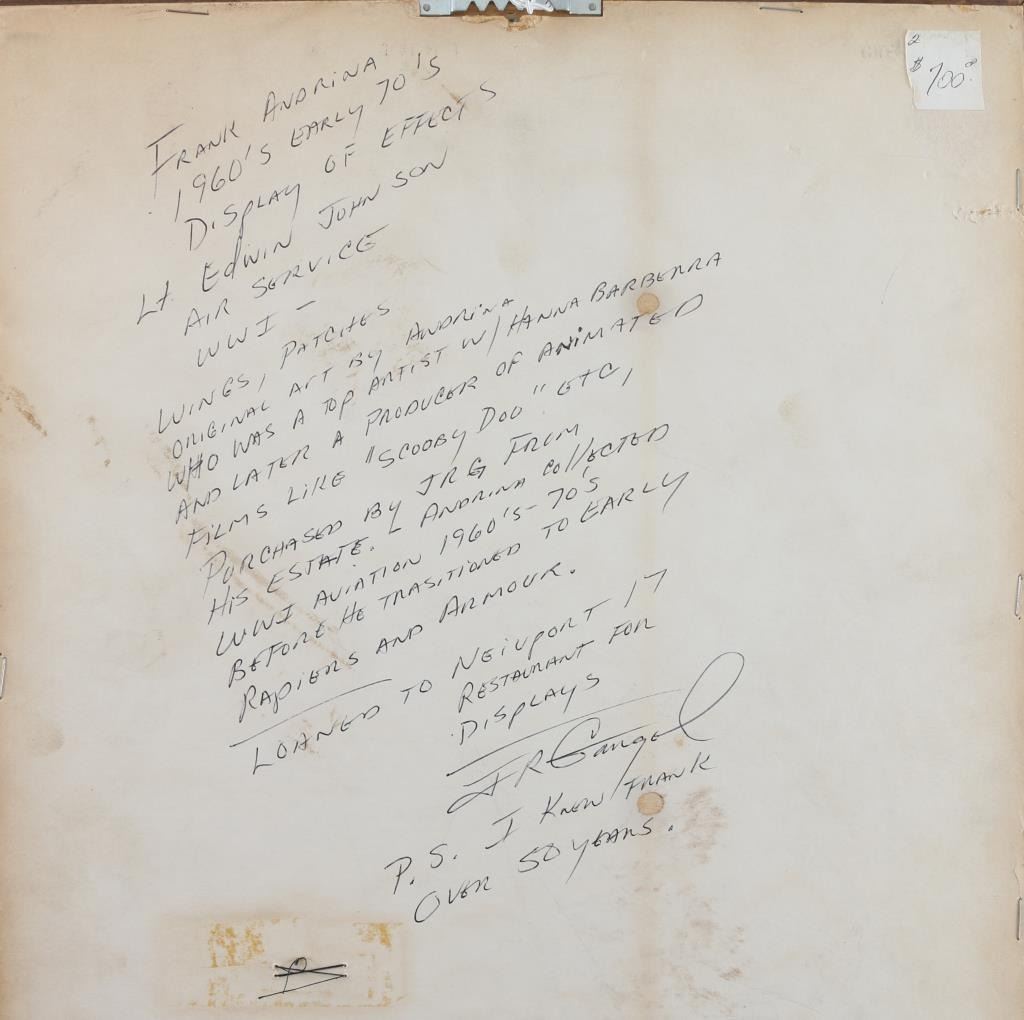 FRANK ANDRINA
1960'S EARLY 70'S
DISPLAY OF EFFECTS
Lt. EDWIN JOHNSON
AIR SERVICE
WWI -
WINGS, PATCHES
ORIGINAL ART BY ANDRINA
WHO WAS A TOP ARTIST W/ HANNA BARBERRA
AND LATER A PRODUCER OF ANIMATED
FILMS LIKE "SCOOBY DOO" ETC,
PURCHASED BY JRG FROM
HIS ESTATE. - ANDRINA COLLECTED
WWI AVIATION 1960'S-70'S
BEFORE HE TRASITIONED TO EARLY
RAPIERS AND ARMOUR.
LOANED TO NEIUPORT 17
RESTAURANT FOR
DISPLAYS
JRGangel
P.S. I KNEW FRANK
OVER 50 YEARS.
2
$ 700.